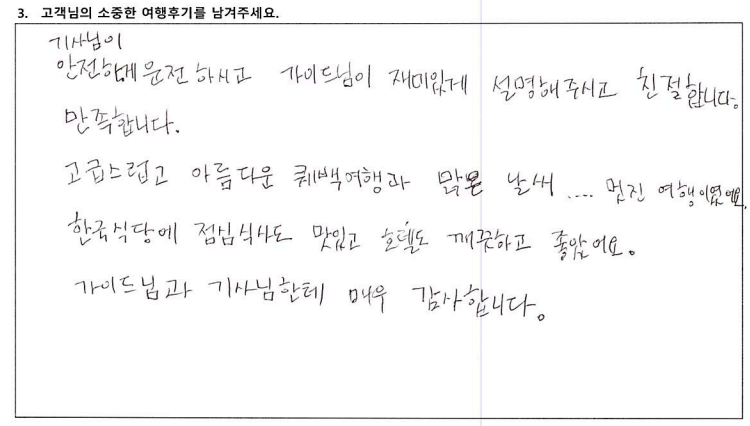 3. 고객님의 소중한 여행후기를 남겨주세요.
기사님이
안전하게 운전하시고 가이드님이 재미있게 설명해주시고 친절합니다.
만족합니다.
고급스럽고 아름다운 퀘백여행과 맑은 날씨 .... 멋진 여행이였어요.
한국식당에 점심식사도 맛있고 호텔도 깨끗하고 좋았어요.
가이드님과 기사님한테 매우 감사합니다.